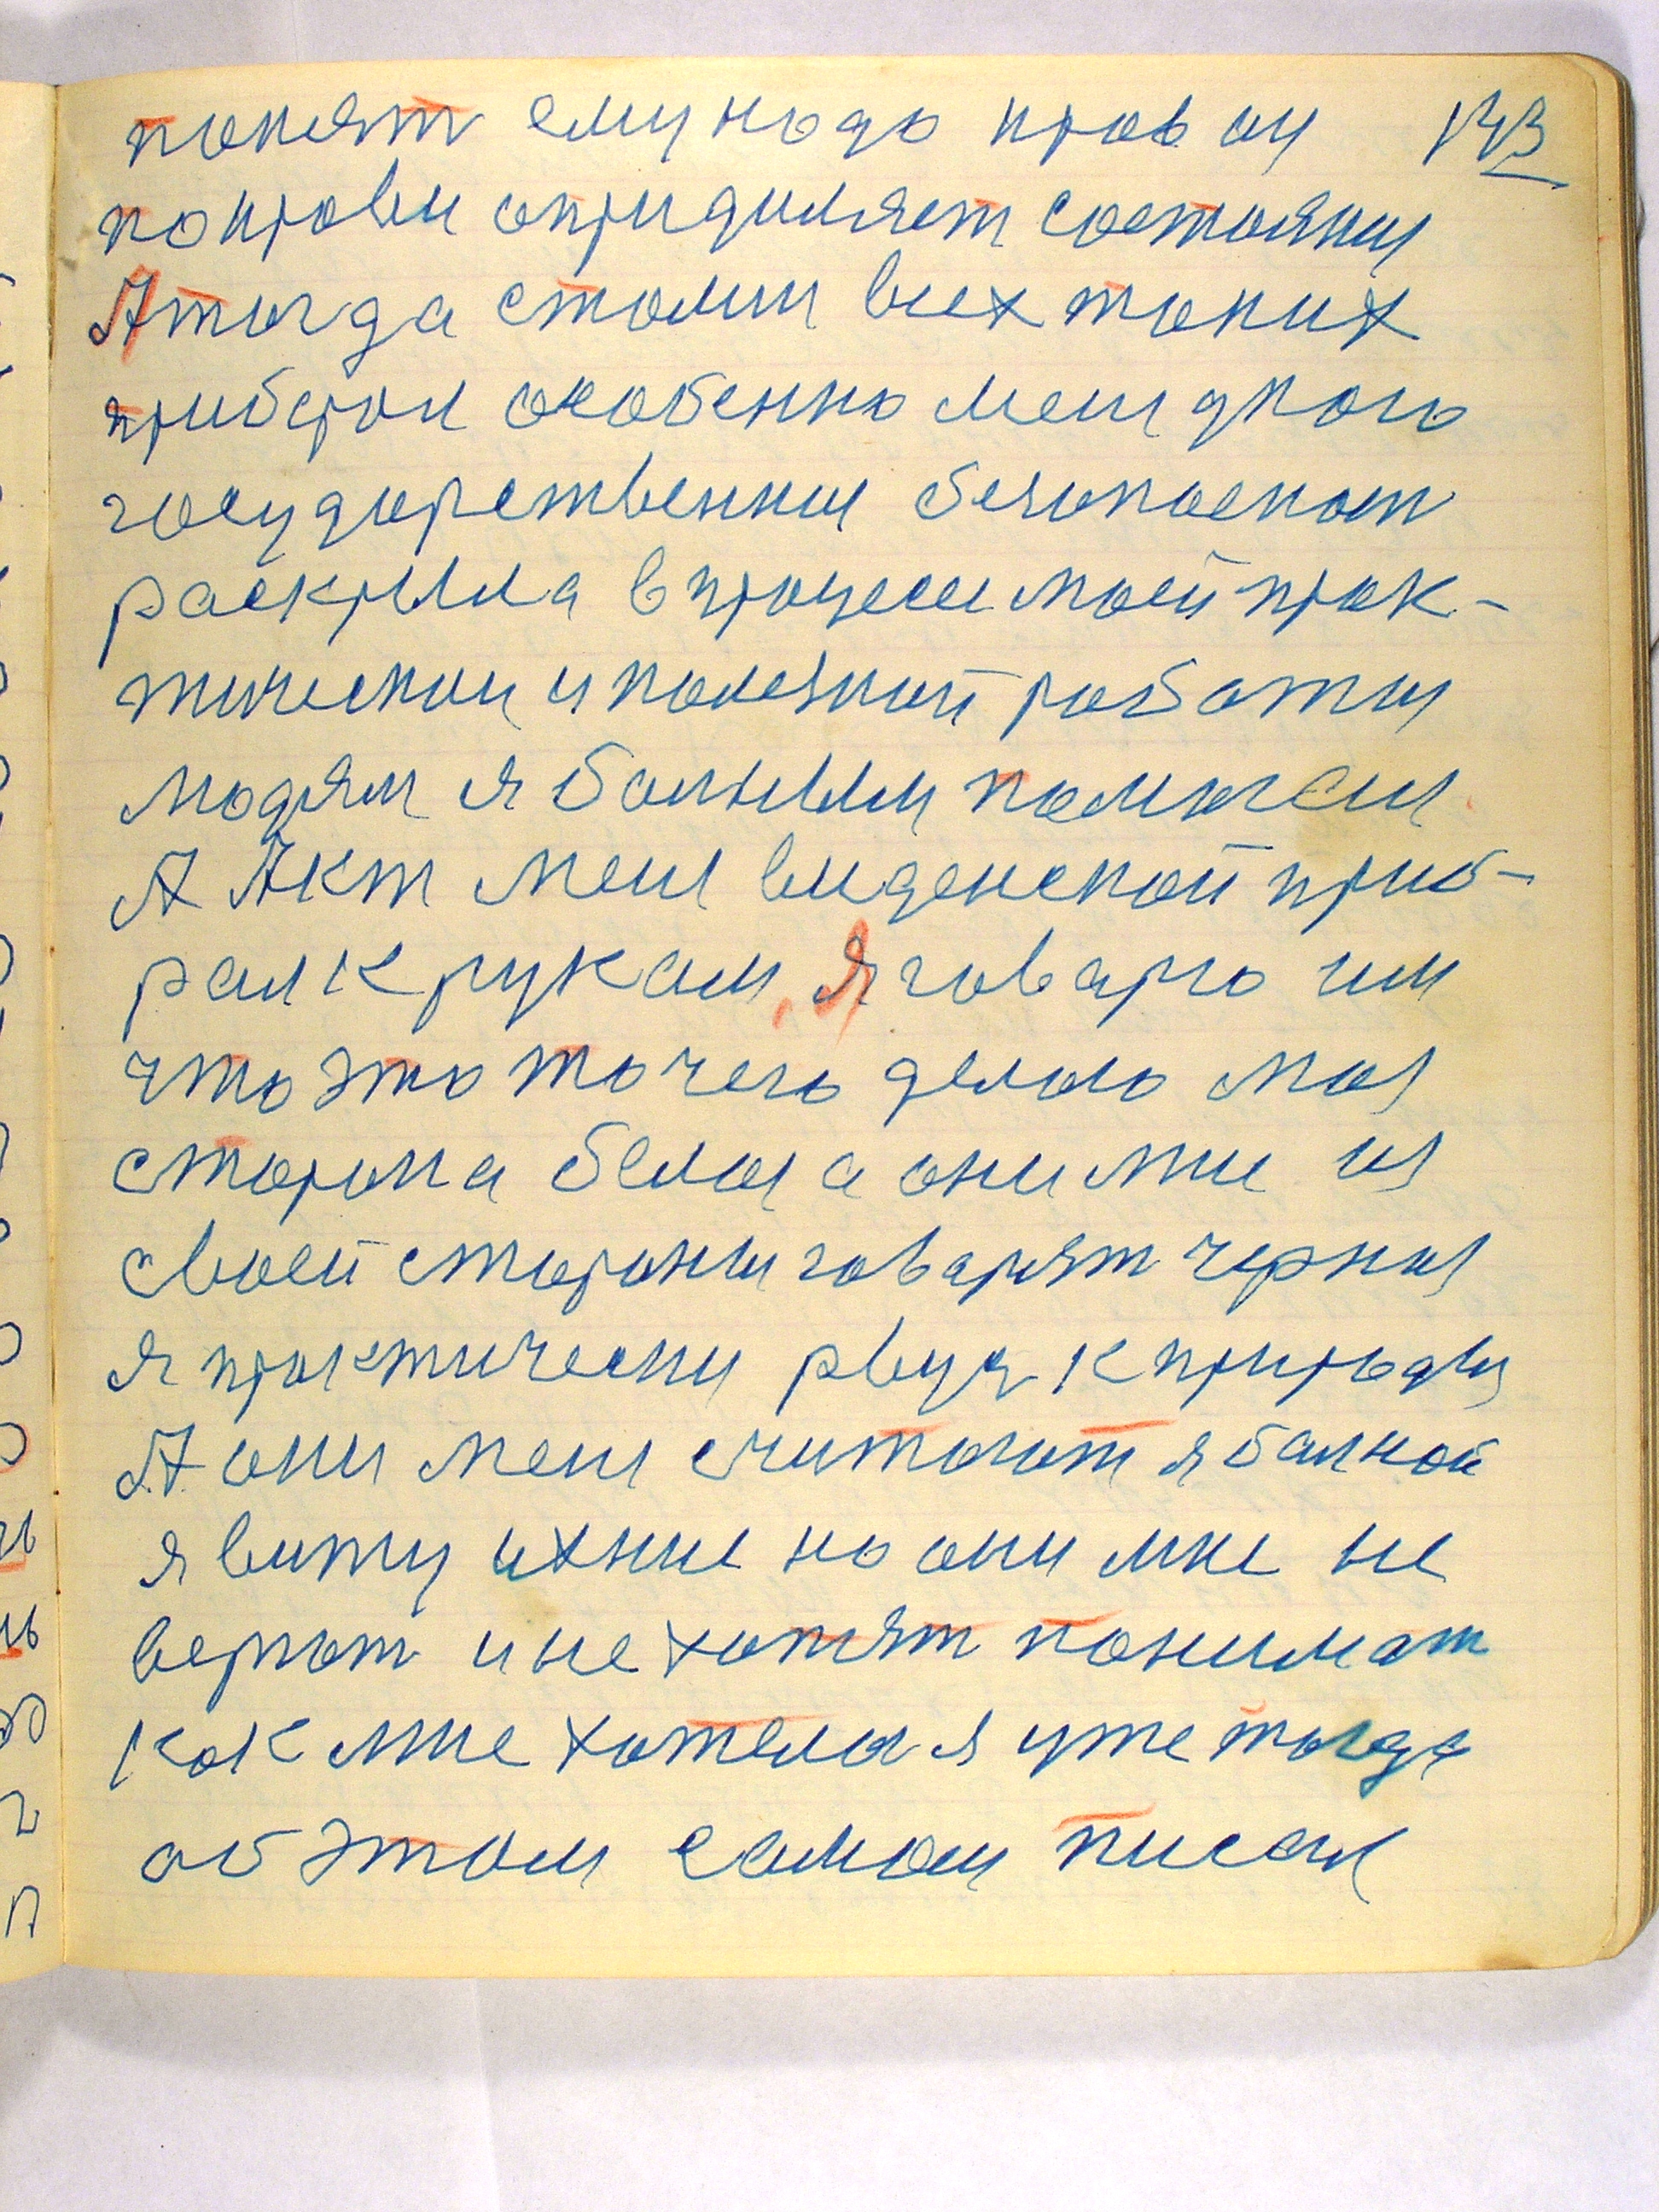 понят ему надо кров ой 143
по крови определяет состояния
А тогда стали всех таких
прибрал особенно меня дкого
государственная безопасност
раскрыла в процесе моей прак-
тической и полезной работы
людям я больным помогал
А Акт меня введенской приб-
рал к рукам, Я говарю им
что это то чего делаю моя
сторона белая а они мне из
своей стороны говарят черная
я практически рвуся к природы
А они меня считают я балной
я вижу ихние но они мне не
верют и не хотят понимат
как мне хотелося уже тогда
об этом самом писал